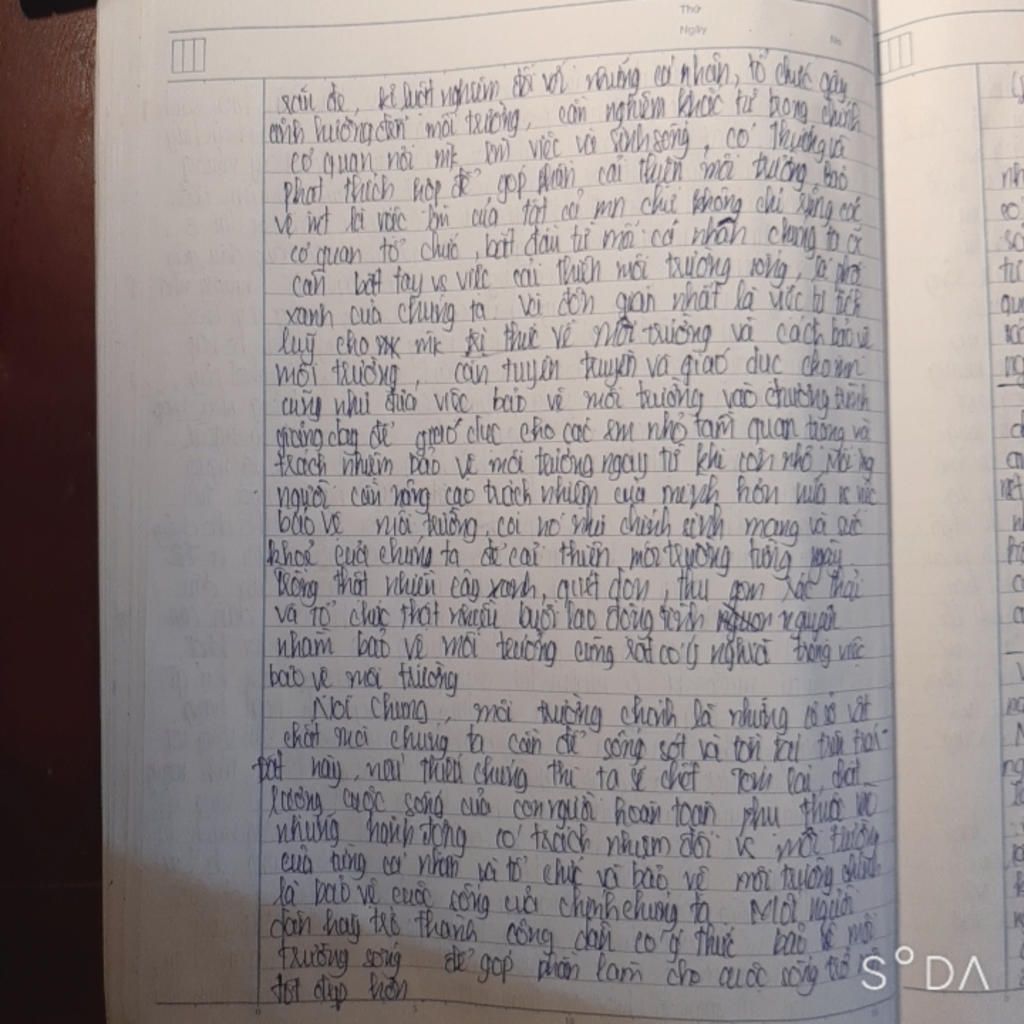 Thứ
Ngày
No
sát đó, kỉ luật nghiêm đối với những cá nhân, tổ chức gây
ảnh hưởng đến môi trường, cần nghiêm khắc từ trong chính
cơ quan nơi mk làm việc và sinh sống, có thưởng và
phạt thích hợp để góp phần cải thiện môi trường Bảo
vệ mt là việc làm của tất cả mn chứ không chỉ riêng các
cơ quan tổ chức, bắt đầu từ mỗi cá nhân chúng ta
cần bắt tay vs việc cải thiện môi trường sống, lá phổi
xanh của chúng ta Và đơn giản nhất là việc tự tích
luỹ cho mk tri thức về môi trường và cách bảo vệ
môi trường, cần tuyên truyền và giáo dục cho
cũng như đưa việc bảo vệ môi trường vào chương trình
giảng dạy để giáo dục cho các em nhỏ tầm quan trọng và
trách nhiệm bảo vệ môi trường ngay từ khi còn nhỏ Mỗi
người cần nâng cao trách nhiệm của mình hơn nữa vs việc
bảo vệ môi trường, coi nó như chính sinh mạng và sức
khoẻ của chúng ta để cải thiện môi trường từng ngày
trồng thật nhiều cây xanh, quét dọn, thu gom rác thải
và tổ chức thật nhiều buổi lao động tình nguyện
nhằm bảo vệ môi trường cũng rất có ý nghĩa trong việc
bảo vệ môi trường
Nói chung, môi trường chính là những vật
chất mà chúng ta cần để sống sót và tồn tại trên trái
đất này, nếu thiếu chúng thì ta sẽ chết Tóm lại, chất
lượng cuộc sống của con người hoàn toàn phụ thuộc vào
những hành động có trách nhiệm đối vs môi trường
của từng cá nhân và tổ chức vì bảo vệ môi trường chính
là bảo vệ cuộc sống của chính chúng ta Mỗi người
dân hãy trở thành công dân có ý thức bảo vệ môi
trường sống để góp phần làm cho cuộc sống trở
tốt đẹp hơn
SODA